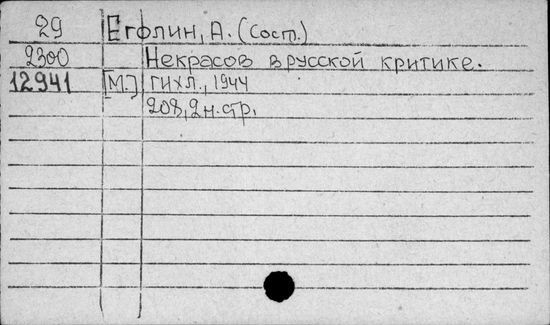 29 Еголин, А. (Сост.)
2300 Некрасов в русской критике.
12941 [М.] ГИХЛ., 1944
208, 2 н. стр.